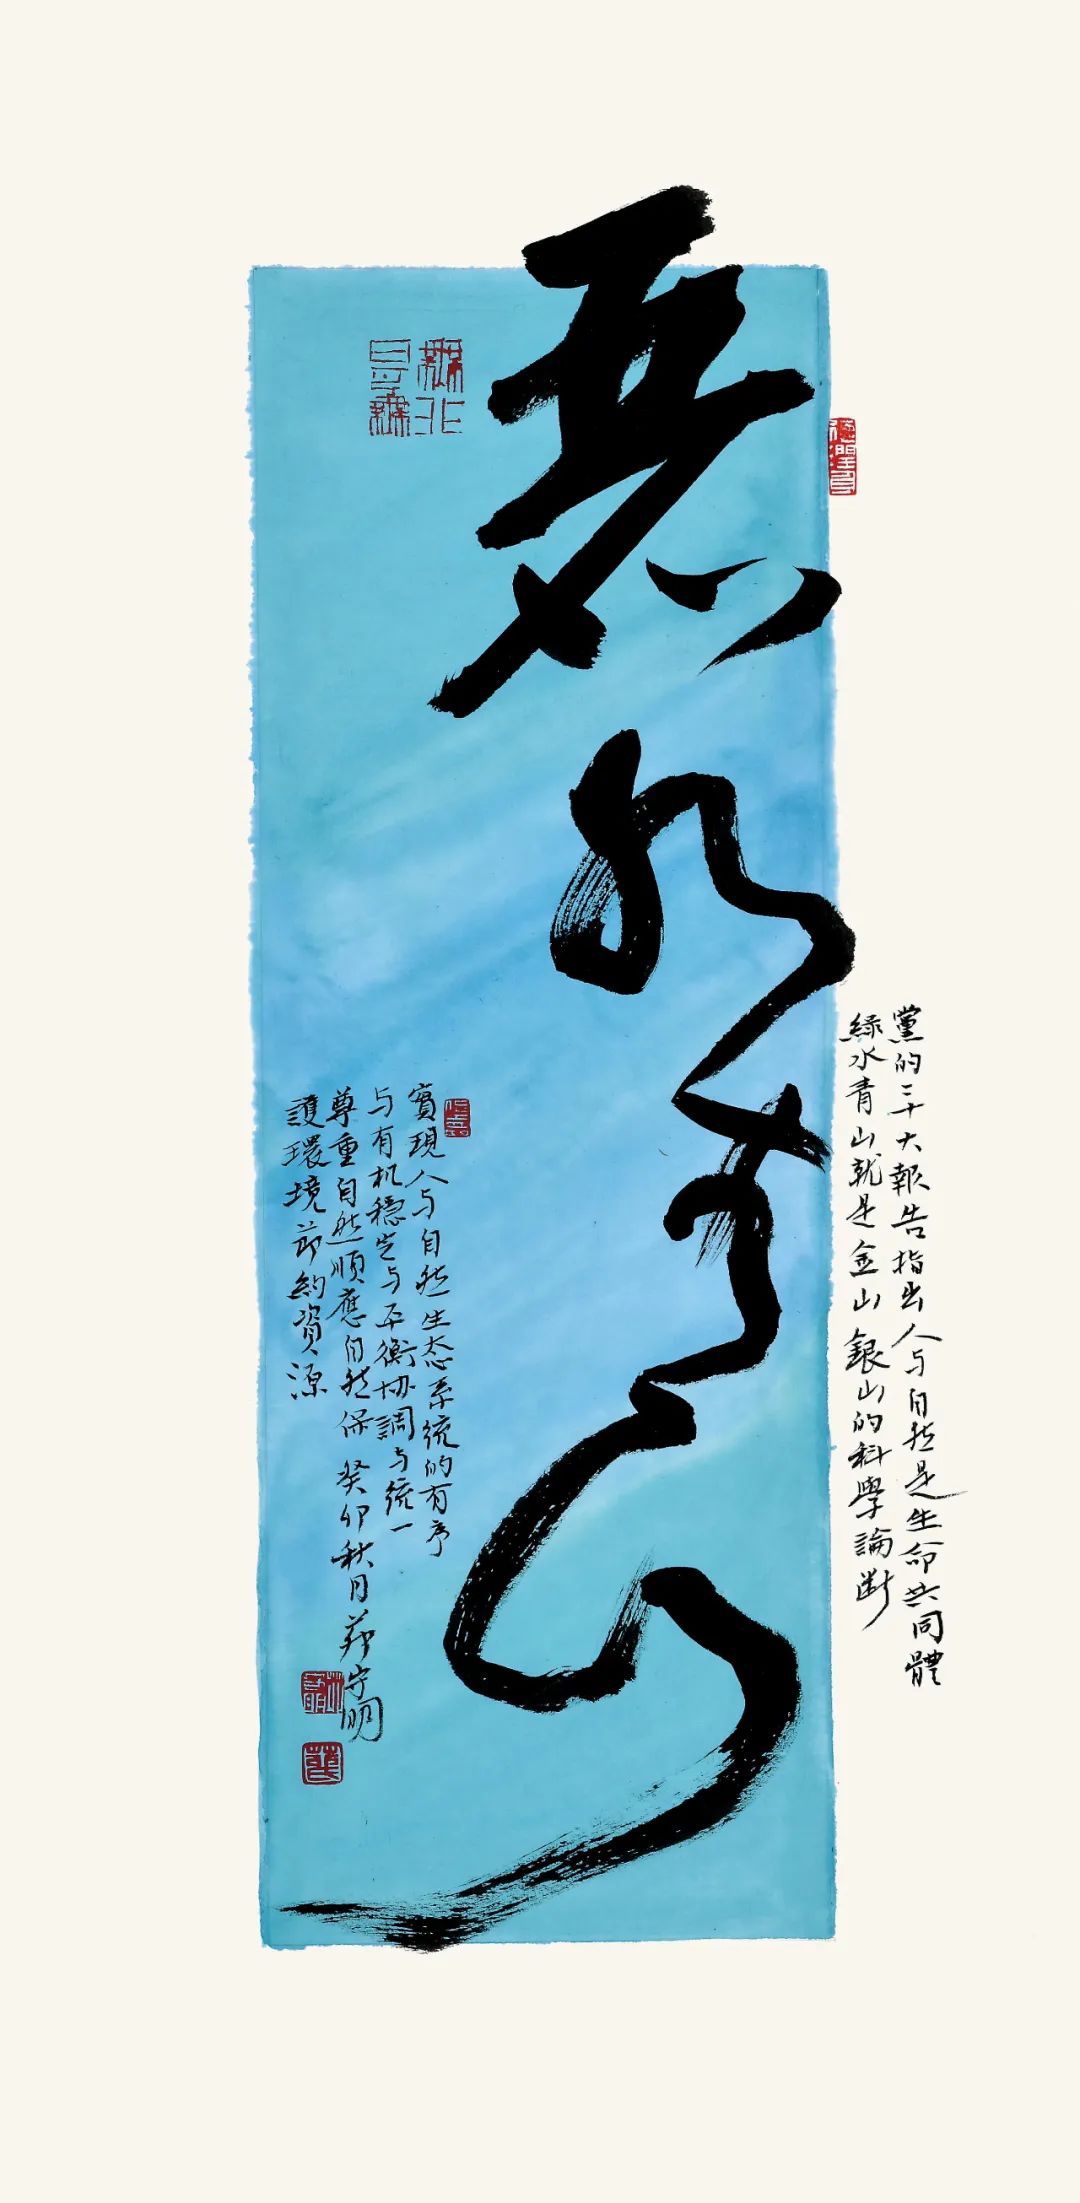 碧水青山
黨的二十大報告指出人与自然是生命共同體
綠水青山就是金山銀山的科學論斷
實現人与自然生态系統的有序
与有机穩定与平衡协調与統一
尊重自然順應自然保
護環境節約資源
癸卯秋月 守明